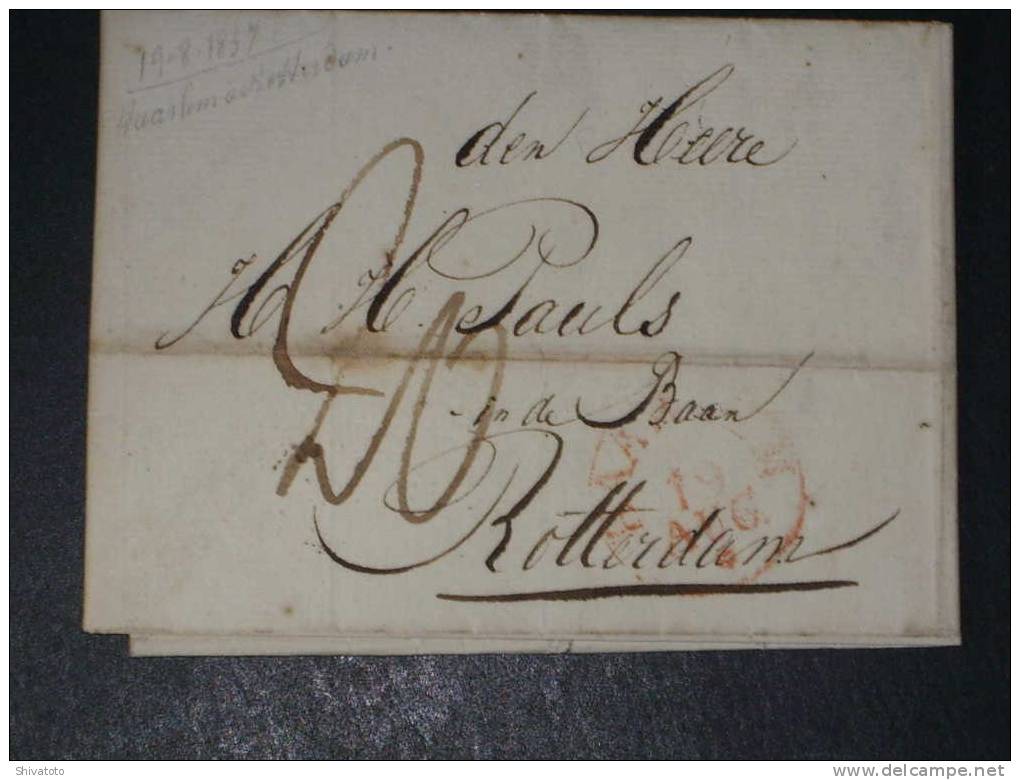 19-8-1837
Haarlem à Rotterdam.
den Heere
H. H. Pauls
in de Baan
Rotterdam
19
AUG
Shivatoto
www.delcampe.net